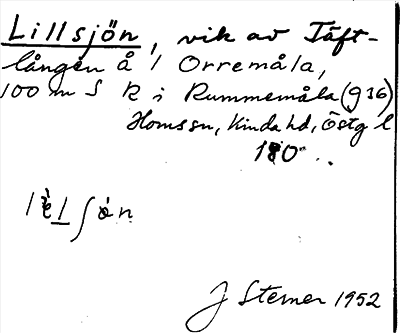 Lillsjön, vik av Täft-
lången å 1 Orremåla,
100 m S R i Rummemåla (g 36)
Homssn, Kinda hd, Östg l
J Sterner 1952